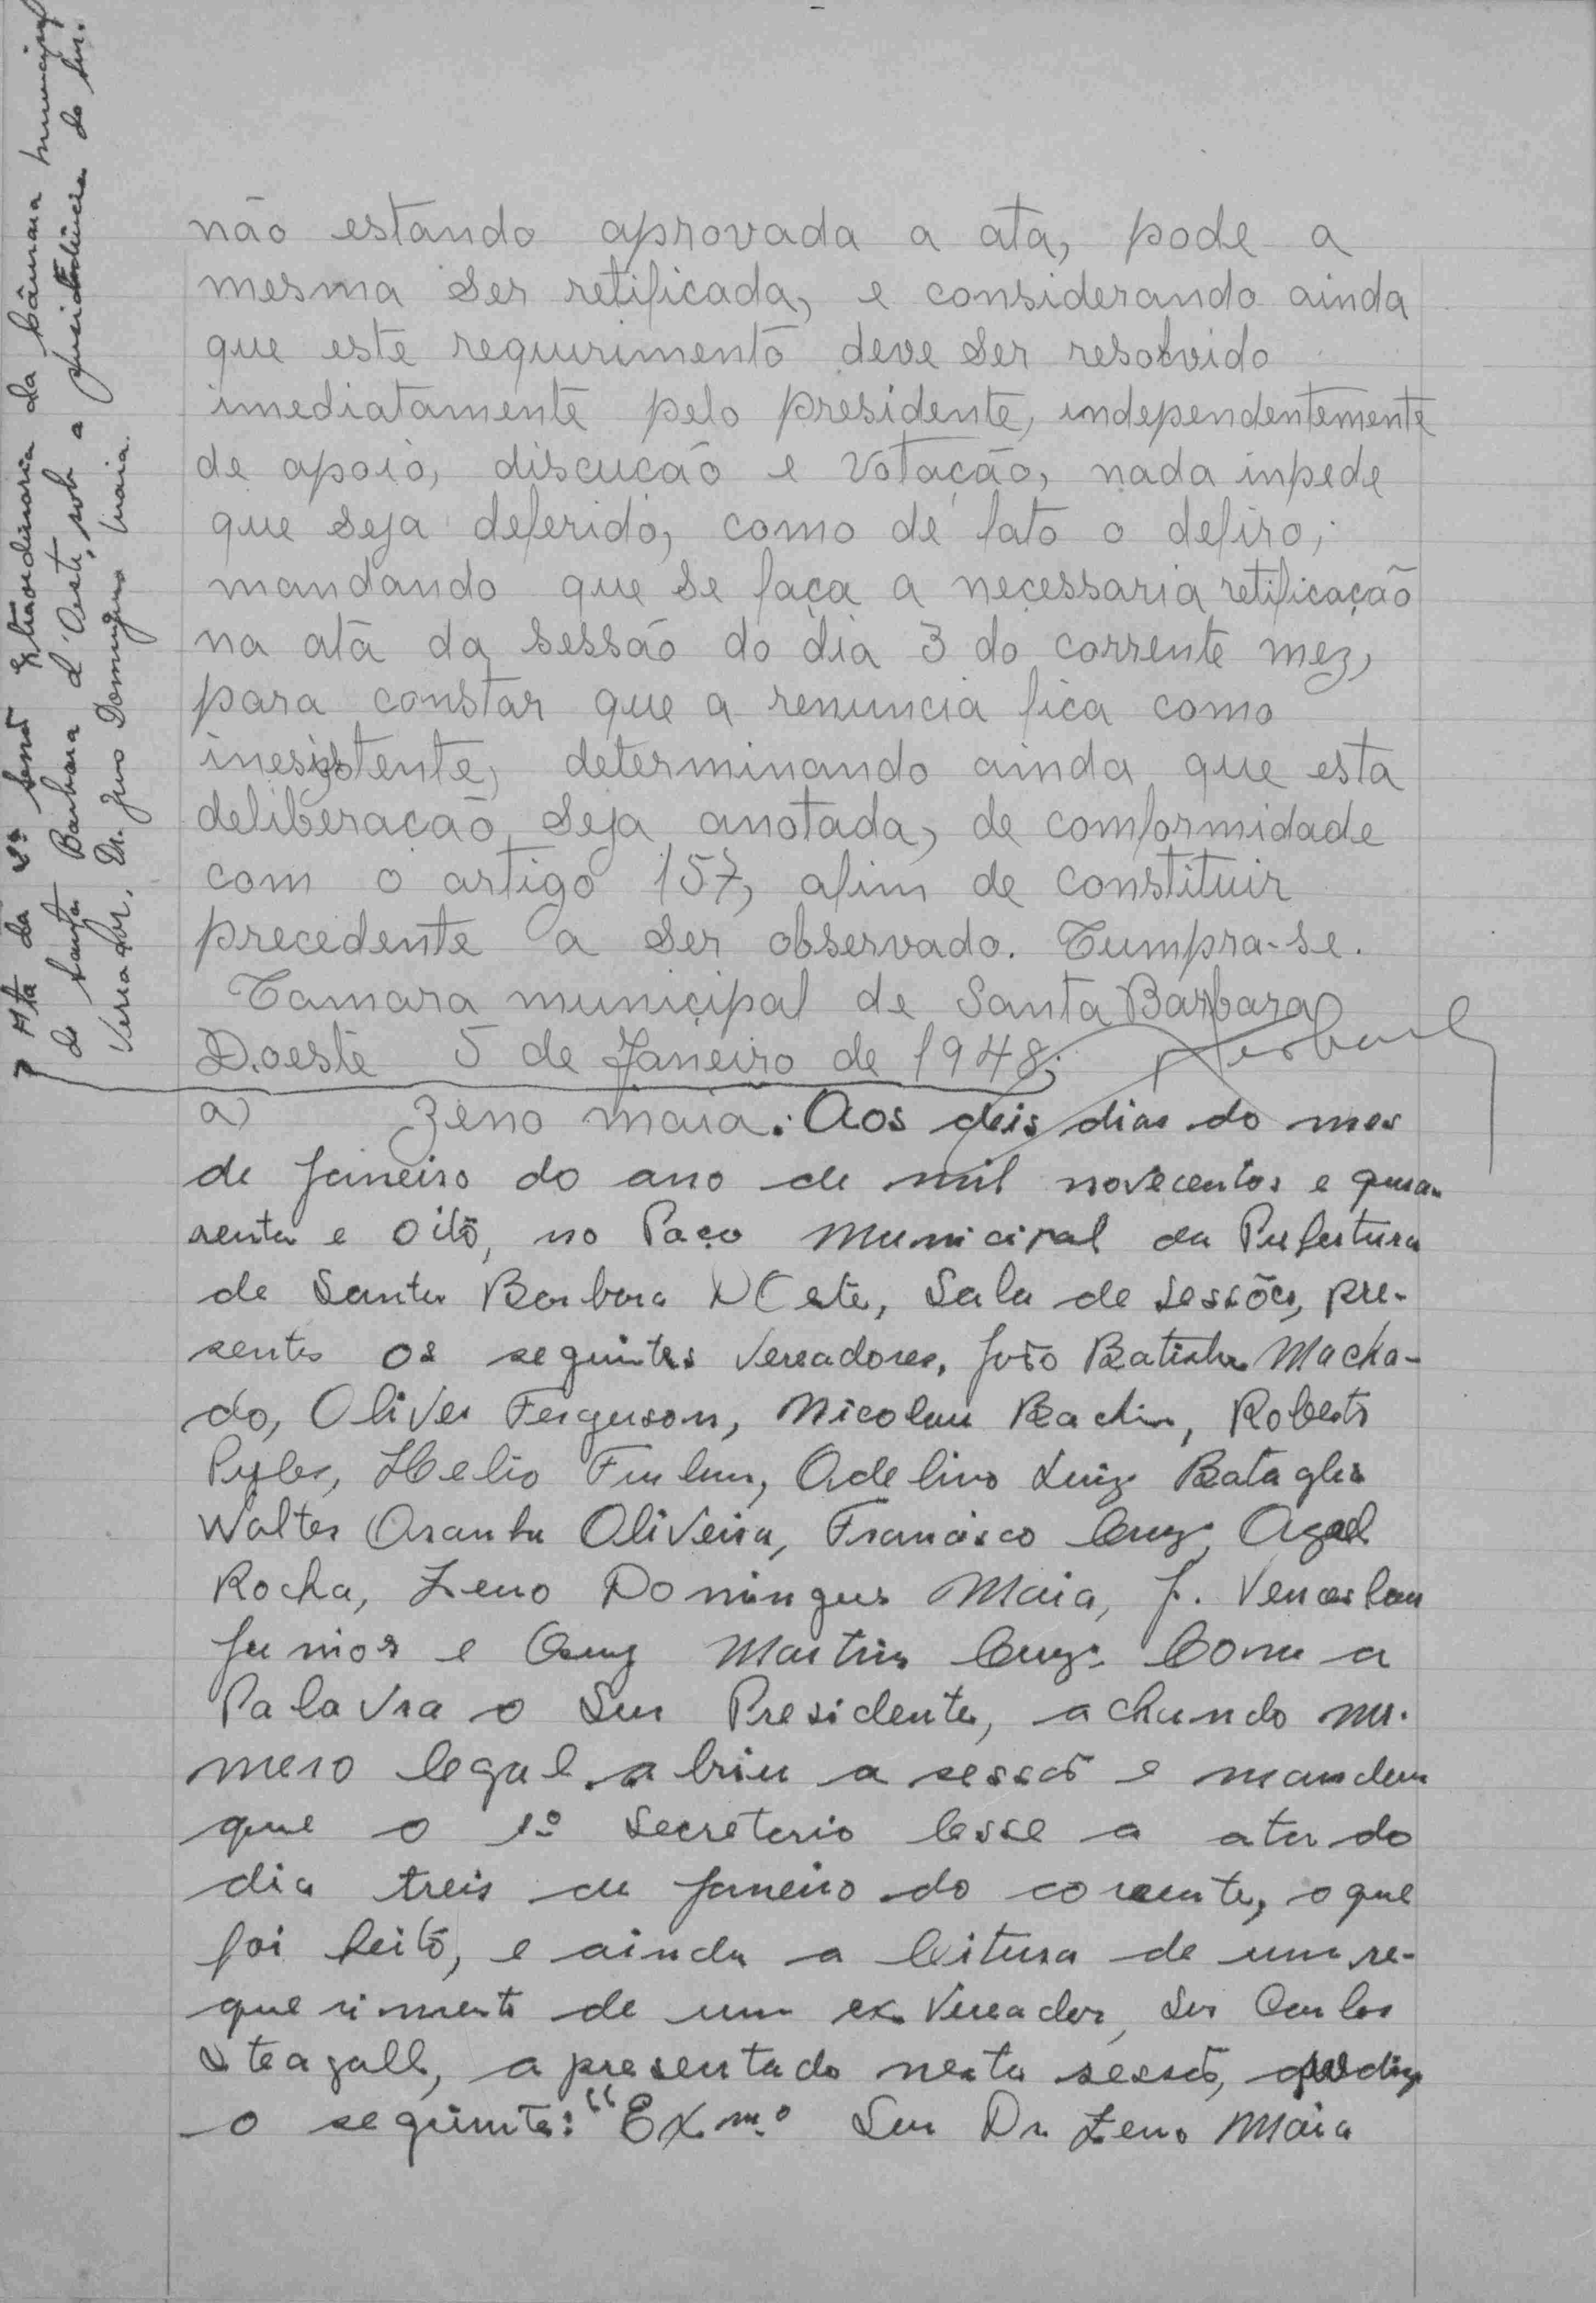 não estando aprovada a ata, pode a
mesma ser retificada, e considerando ainda
que este requerimento deve ser resolvido
imediatamente pelo presidente, independentemente
de apoio, discucão e votação, nada inpede
que seja deferido, como de fato o defiro,
mandando que se faça a necessaria retificação
na ata da sessão do dia 3 do corrente mez,
para constar que a renuncia fica como
inesistente, determinando ainda que esta
deliberacão seja anotada, de comformidade
com o artigo 157, afim de constituir
precedente a ser observado. Cumpra-se.
Camara municipal de Santa Barbara
D.oeste 5 de Janeiro de 1948.
a) Zeno maia. Aos seis dias do mes
de Janeiro do ano de mil novecentos e qua-
renta e oito, no Paço Municipal da Prefeitura
de Santa Barbara D'Oeste, Sala de Sessões, pre-
sentes os seguintes Vereadores, João Batista Macha-
do, Oliver Ferguson, Nicolau Bachin, Roberto
Pyles, Helio Furlan, Adelino Luiz Bataglia
Walter Aranha Oliveira, Francisco Cruz, Agael
Rocha, Zeno Domingues Maia, J. Venceslau
Junior e Martin Cruz. Com a
Palavra o Snr Presidente, achando nu-
mero legal abriu a sessão e mandou
que o 1º Secretario lesse a ata do
dia treis de Janeiro do corrente, o que
foi feito, e ainda a leitura de um re-
querimento de um ex Vereador, Snr Carlos
Steagall, apresentado nesta sessão, que diz
o seguinte: "Exmº Snr Dr. Zeno Maia
Ata da 2ª Sessão Extraordinaria da Câmara Municipal
de Santa Barbara d'Oeste, sob a presidência do Snr.
Vereador, Dr. Zeno Domingues Maia.